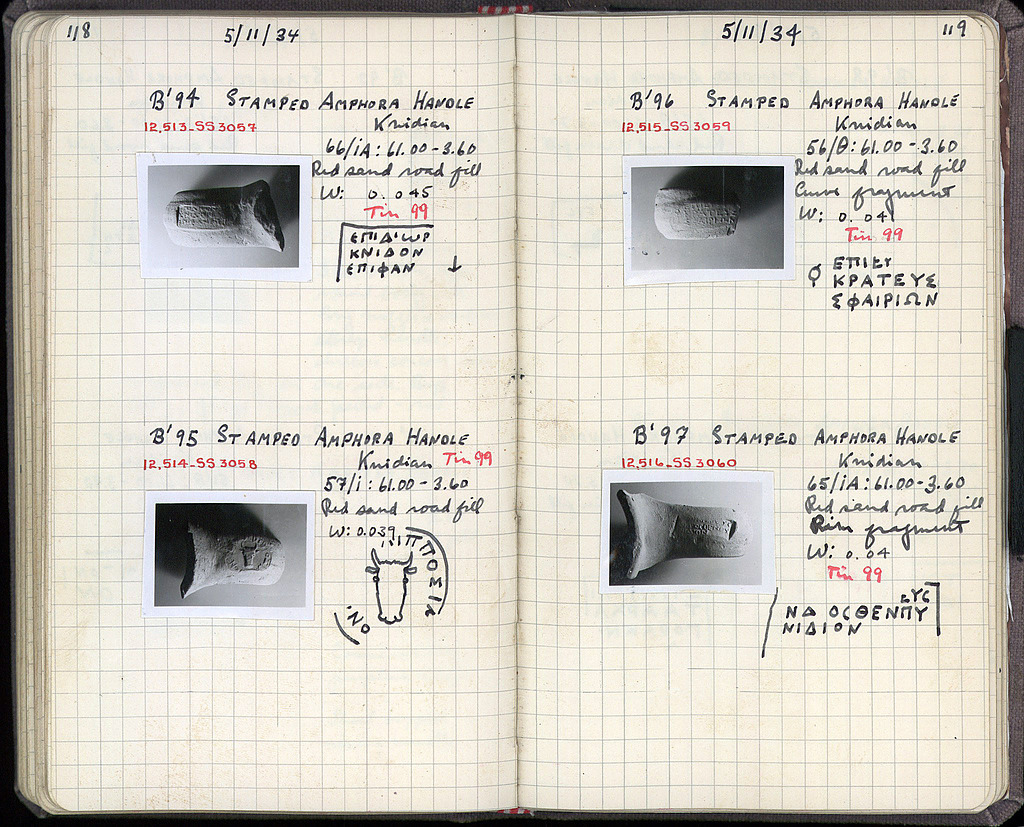 118
5/11/34
B'94 STAMPED AMPHORA HANDLE
12.513_SS 3057
Knidian
66/ΙΑ: 61.00-3.60
Red sand road fill
W: 0.045
Tin 99
ΕΠΙΔΙѠΡ
ΚΝΙΔΟΝ
ΕΠΙΦΑΝ ↓
B'95 STAMPED AMPHORA HANDLE
12.514_SS 3058
Knidian Tin 99
57/i: 61.00-3.60
Red sand road fill
W: 0.039
ΙΠΠΟΣΙΔ
ΝΟ
5/11/34
119
B'96 STAMPED AMPHORA HANDLE
12.515_SS 3059
Knidian
56/Θ: 61.00-3.60
Red sand road fill
Curve fragment
W: 0.04
Tin 99
ΕΠΙΕΥ
ΚΡΑΤΕΥΣ
ΣΦΑΙΡΙΩΝ
B'97 STAMPED AMPHORA HANDLE
12.516_SS 3060
Knidian
65/ΙΑ: 61.00-3.60
Red sand road fill
Rim fragment
W: 0.04
Tin 99
ΥϹ
ΝΔ ΟϹΘΕΝΠΥ
ΝΙΔΙΟΝ